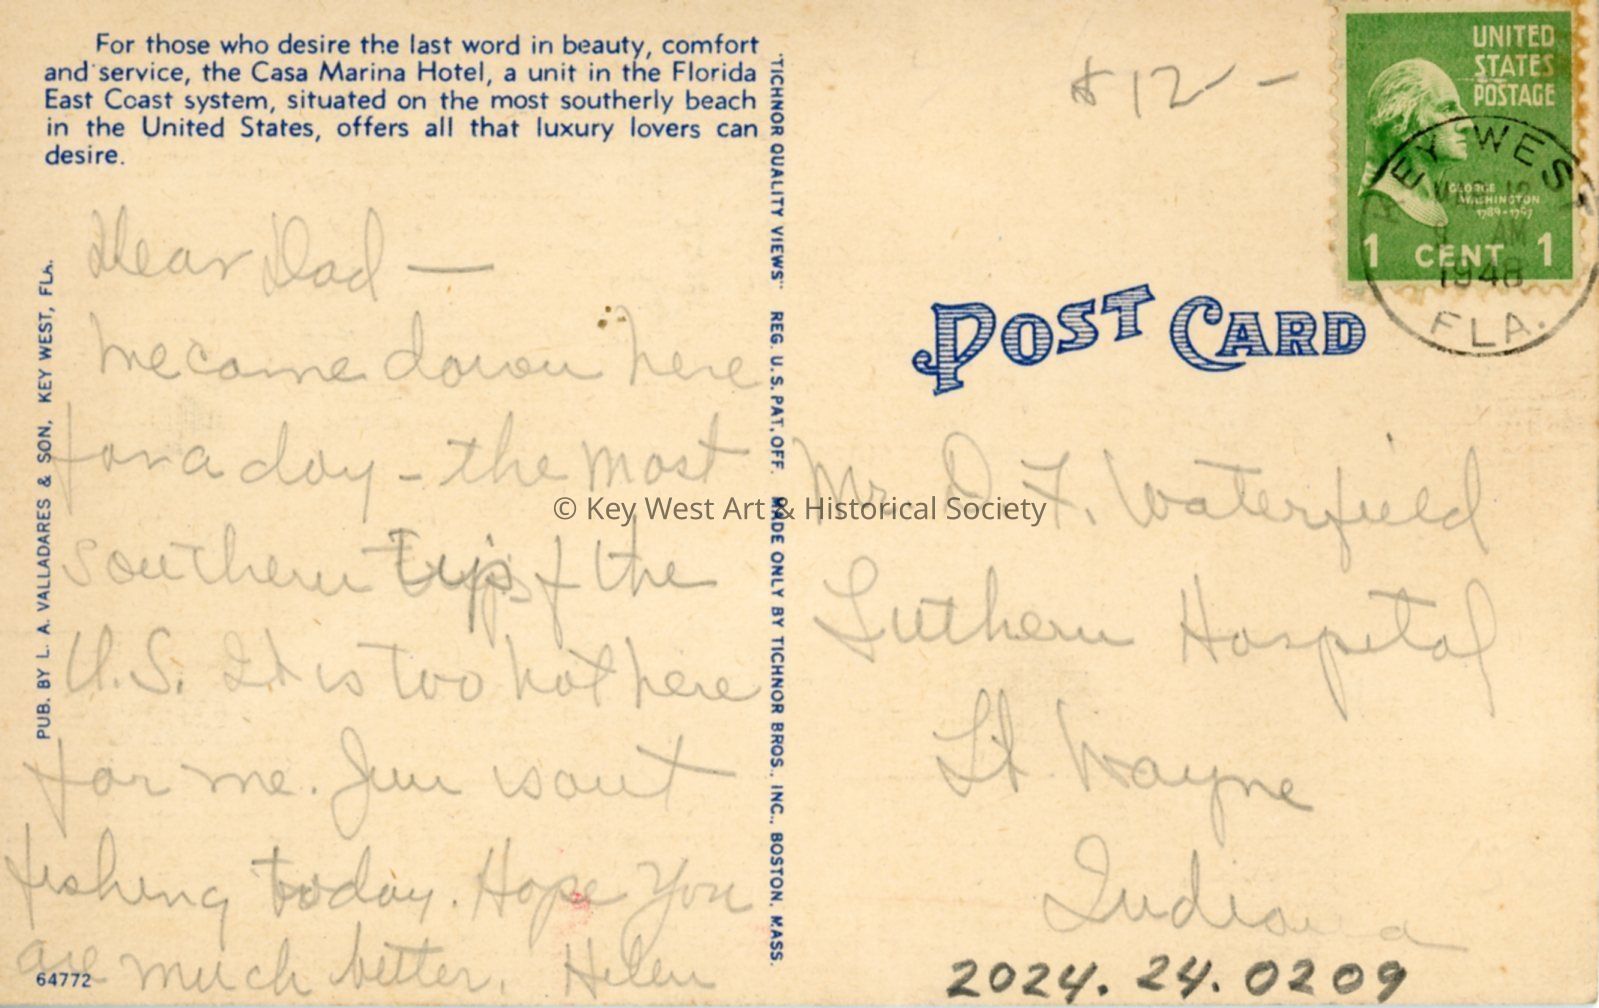 For those who desire the last word in beauty, comfort
and service, the Casa Marina Hotel, a unit in the Florida
East Coast system, situated on the most southerly beach
in the United States, offers all that luxury lovers can
desire.
Dear Dad —
We came down here
for a day - the most
southern tip of the
U.S. It is too hot here
for me. Jim is out
fishing today. Hope you
are much better. Helen
64772
PUB. BY L. A. VALLADARES & SON, KEY WEST, FLA.
"TICHNOR QUALITY VIEWS" REG. U. S. PAT. OFF. MADE ONLY BY TICHNOR BROS., INC., BOSTON, MASS.
$12 -
UNITED
STATES
POSTAGE
GEORGE
WASHINGTON
1789-1797
1 CENT 1
KEY WEST
AM
1948
FLA.
POST CARD
Mr. D. F. Waterfield
Luthern Hospital
Ft. Wayne
Indiana
2024.24.0209
© Key West Art & Historical Society